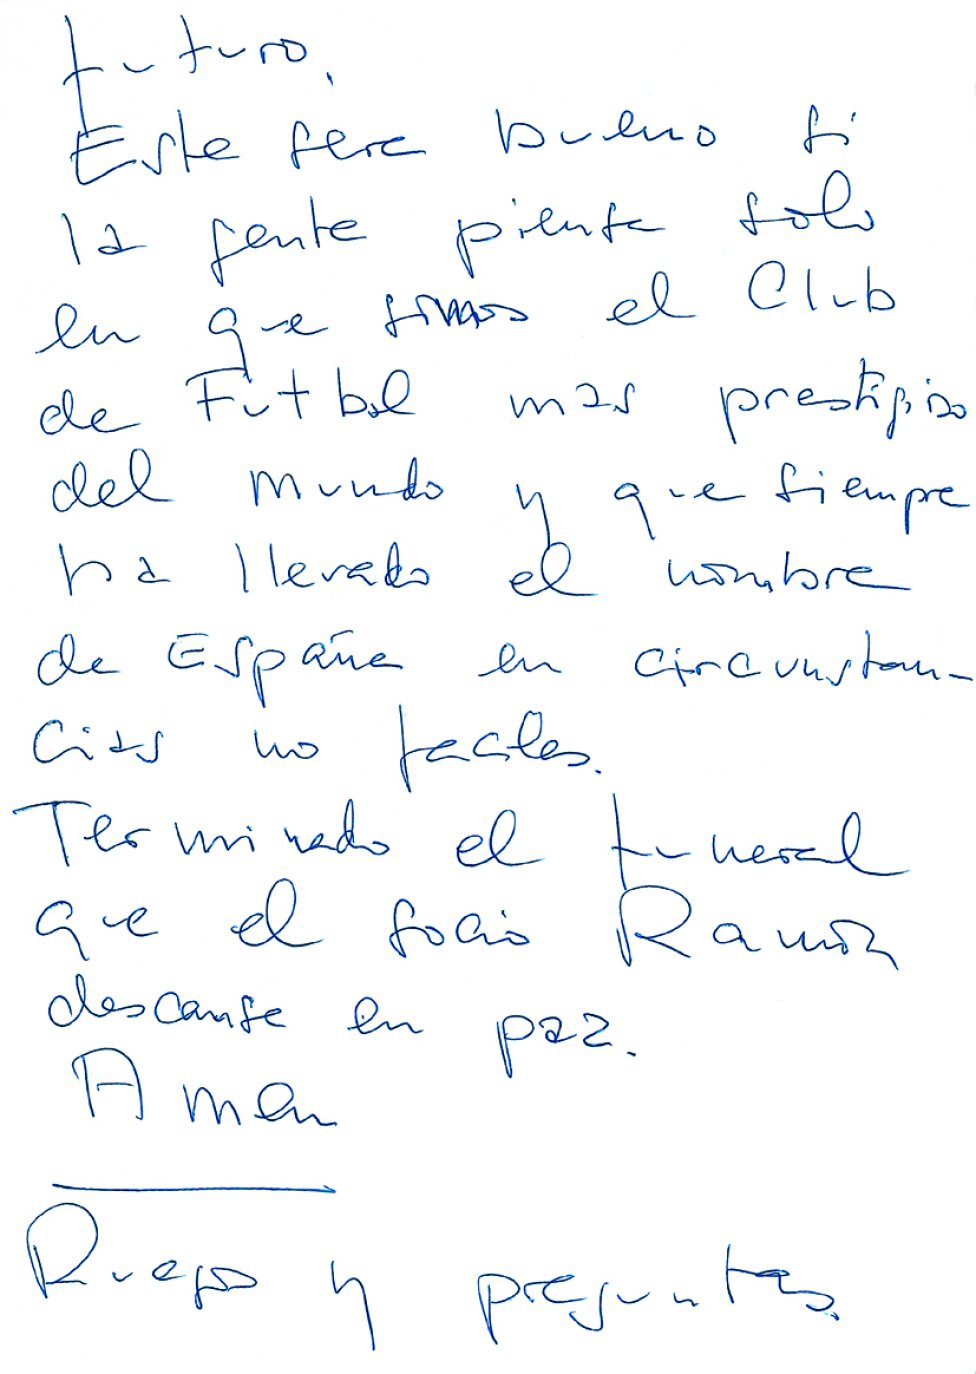 futuro.
Este sera bueno si
la gente piensa solo
en que simos el Club
de Futbol mas prestigiso
del mundo y que siempre
ha llevado el nombre
de España en circunstan-
cias no faciles.
Terminado el funeral
que el socio Ramón
descanse en paz.
Amen
Ruegos y preguntas.